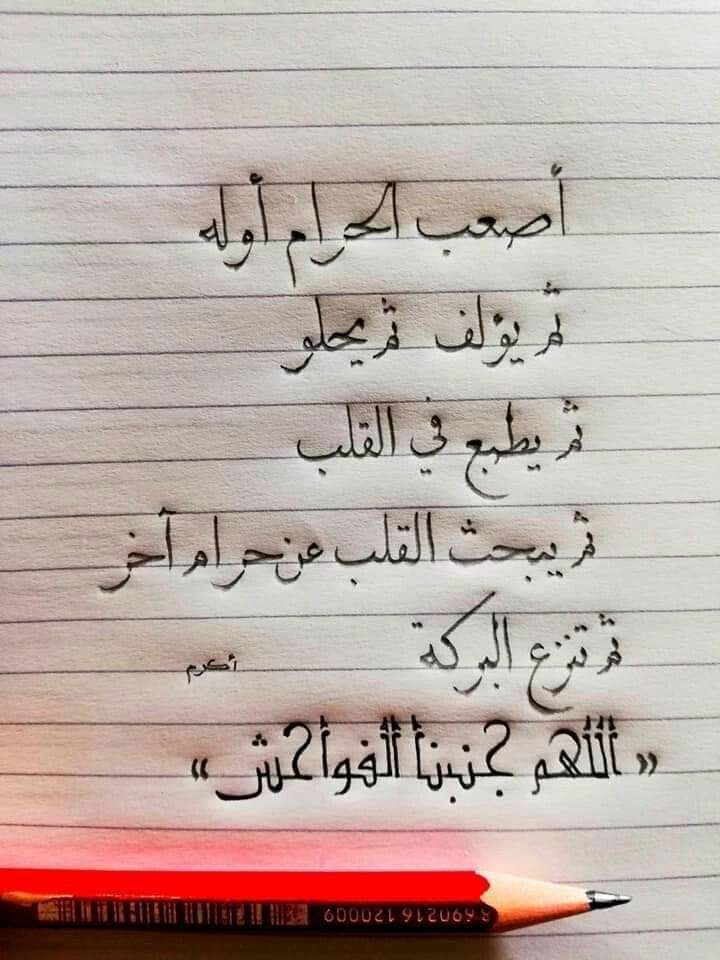 أصعب الحرام أوله
ثم يؤلف ثم يحلو
ثم يطبع في القلب
ثم يبحث القلب عن حرام آخر
ثم تنزع البركة
أكرم
« أللهم جنبنا ألفوأحش »
8 690216 120009